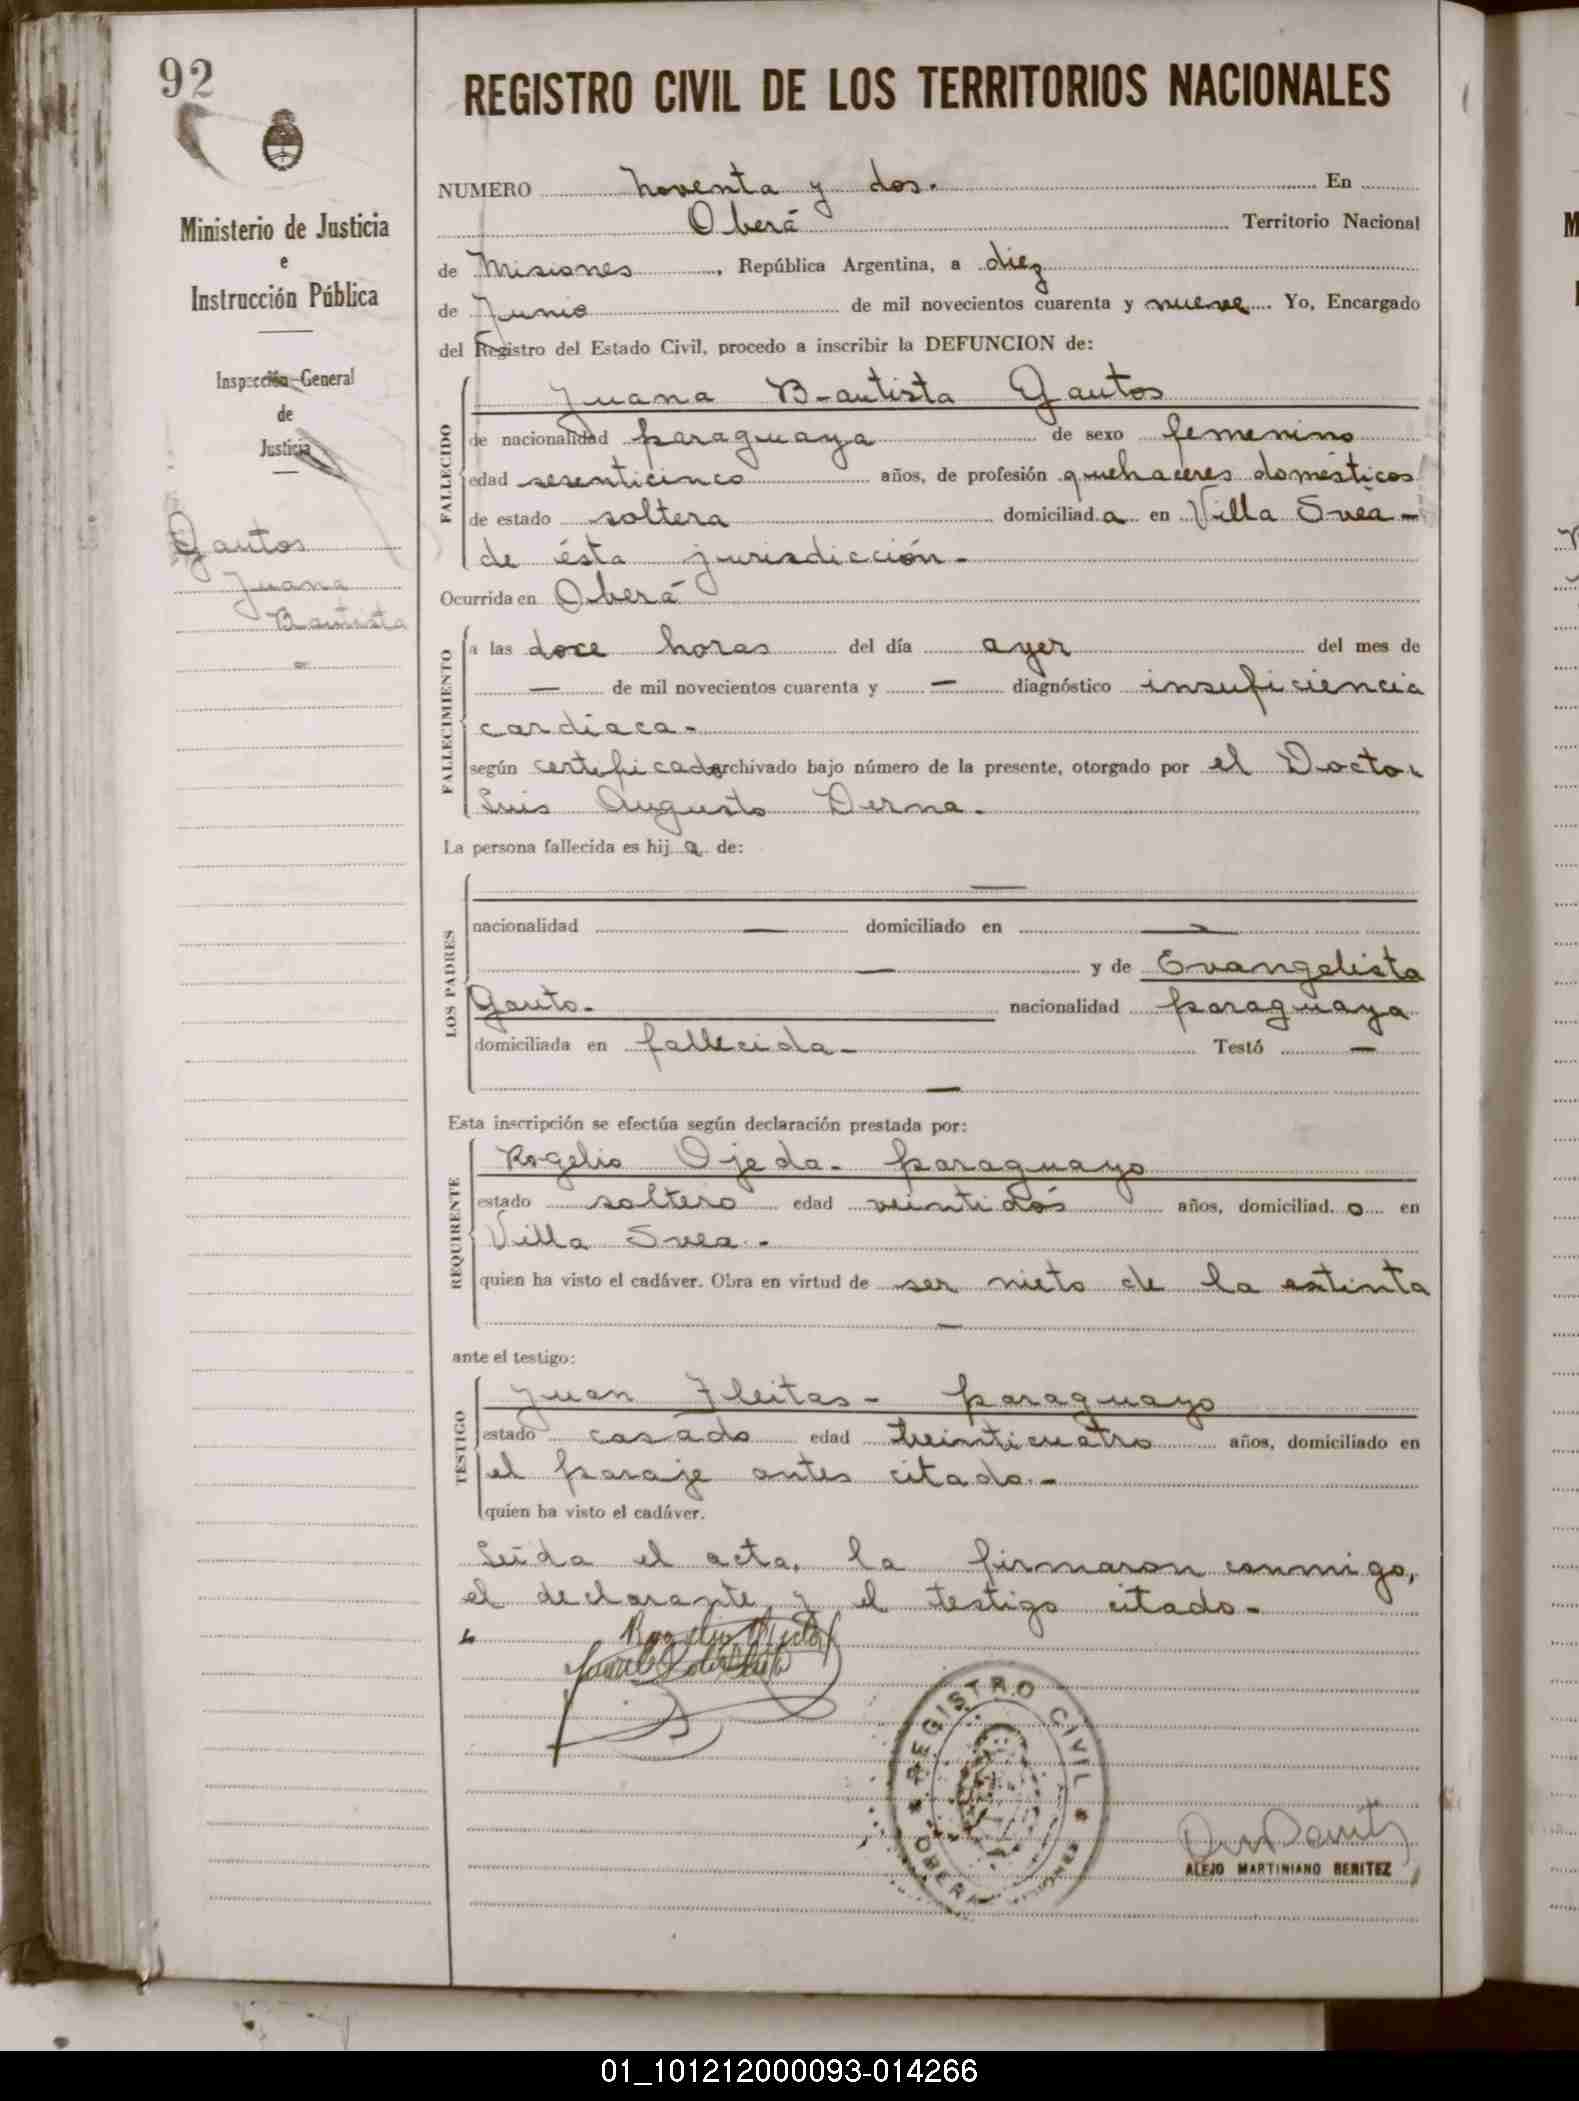 92
REGISTRO CIVIL DE LOS TERRITORIOS NACIONALES
Ministerio de Justicia
e
Instrucción Pública
Inspección General
de
Justicia
Gautos
Juana
Bautista
NUMERO noventa y dos. En
Oberá Territorio Nacional
de Misiones, República Argentina, a diez
de Junio de mil novecientos cuarenta y nueve Yo, Encargado
del Registro del Estado Civil, procedo a inscribir la DEFUNCION de:
FALLECIDO
Juana Bautista Gautos
de nacionalidad paraguaya de sexo femenino
edad sesenticinco años, de profesión quehaceres domésticos
de estado soltera domiciliad a en Villa Svea -
de ésta jurisdicción -
Ocurrida en Oberá
FALLECIMIENTO
a las doce horas del día ayer del mes de
— de mil novecientos cuarenta y — diagnóstico insuficiencia
cardíaca -
según certificado archivado bajo número de la presente, otorgado por el Doctor
Luis Augusto Derna -
La persona fallecida es hij a de:
LOS PADRES
—
nacionalidad — domiciliado en —
— y de Evangelista
Gauto - nacionalidad paraguaya
domiciliada en fallecida - Testó —
—
Esta inscripción se efectúa según declaración prestada por:
REQUIRENTE
Rogelio Ojeda - paraguayo
estado soltero edad veintidós años, domiciliad o en
Villa Svea -
quien ha visto el cadáver. Obra en virtud de ser nieto de la extinta
—
ante el testigo:
TESTIGO
Juan Fleitas - paraguayo
estado casado edad treinticuatro años, domiciliado en
el paraje antes citado -
quien ha visto el cadáver.
Leída el acta, la firmaron conmigo,
el declarante y el testigo citado -
REGISTRO CIVIL
OBERA
ALEJO MARTINIANO BENITEZ
01_101212000093-014266